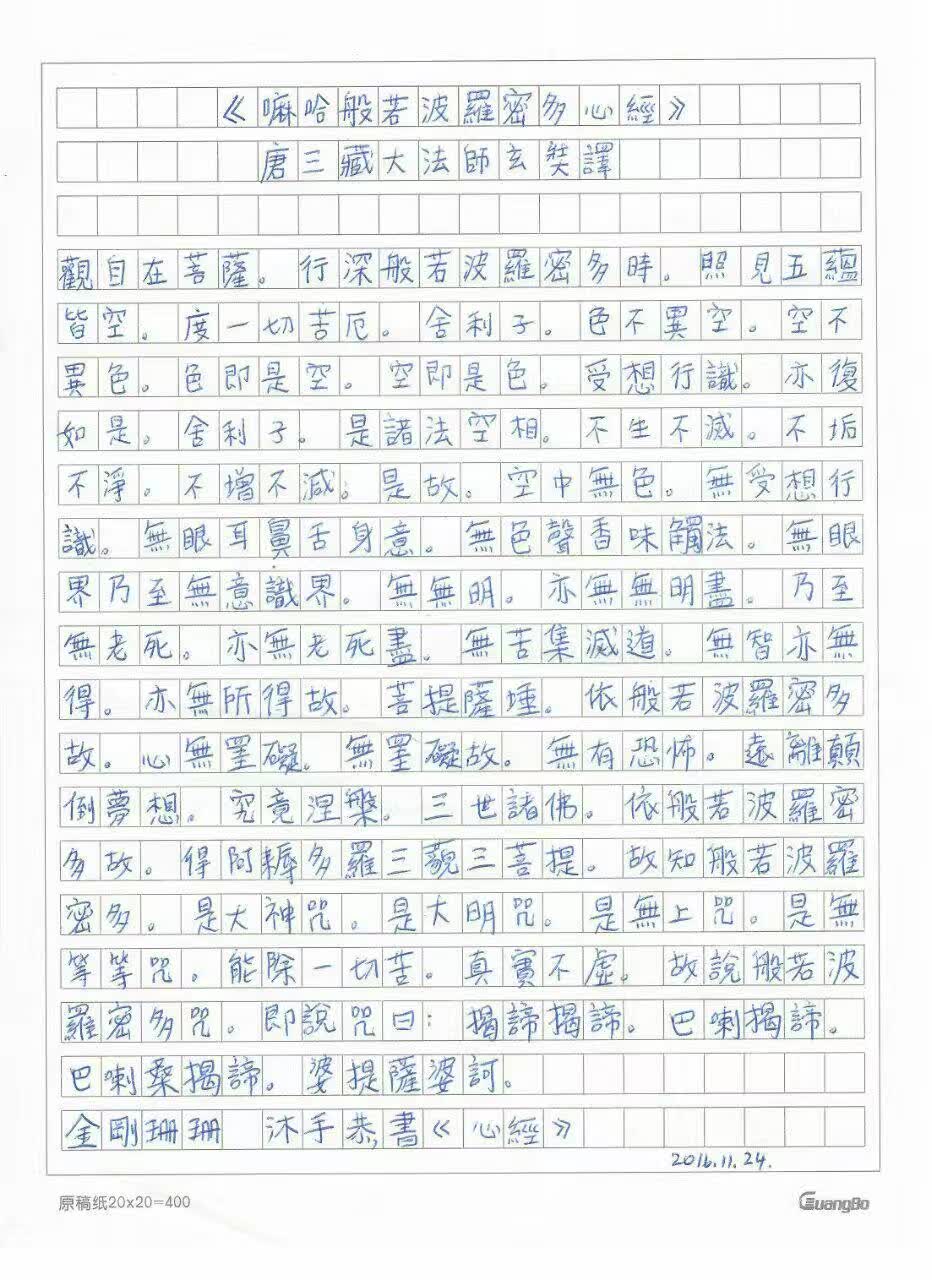 《嘛哈般若波羅密多心經》
唐三藏大法師玄奘譯
觀自在菩薩。行深般若波羅密多時。照見五蘊
皆空。度一切苦厄。舍利子。色不異空。空不
異色。色即是空。空即是色。受想行識。亦復
如是。舍利子。是諸法空相。不生不滅。不垢
不淨。不增不減。是故。空中無色。無受想行
識。無眼耳鼻舌身意。無色聲香味觸法。無眼
界乃至無意識界。無無明。亦無無明盡。乃至
無老死。亦無老死盡。無苦集滅道。無智亦無
得。亦無所得故。菩提薩埵。依般若波羅密多
故。心無罣礙。無罣礙故。無有恐怖。遠離顛
倒夢想。究竟涅槃。三世諸佛。依般若波羅密
多故。得阿耨多羅三藐三菩提。故知般若波羅
密多。是大神咒。是大明咒。是無上咒。是無
等等咒。能除一切苦。真實不虛。故說般若波
羅密多咒。即說咒曰：揭諦揭諦。巴喇揭諦。
巴喇桑揭諦。婆提薩婆訶。
金剛珊珊 沐手恭書《心經》
2016.11.24.
原稿纸20x20=400
GuangBo